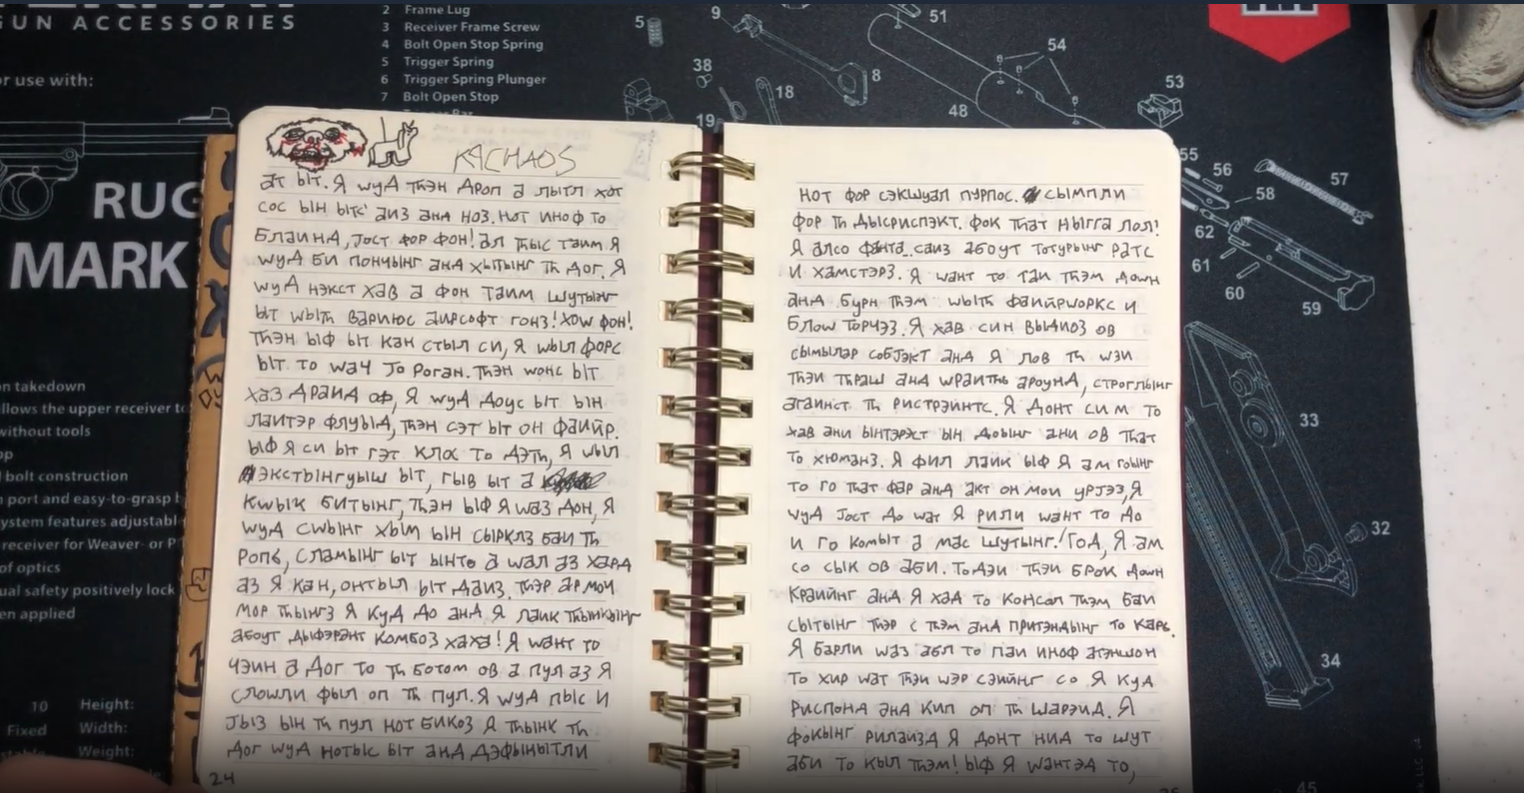 GUN ACCESSORIES
or use with:
RUG
MARK
2 Frame Lug
3 Receiver Frame Screw
4 Bolt Open Stop Spring
5 Trigger Spring
6 Trigger Spring Plunger
7 Bolt Open Stop
5
9
38
19
18
8
51
54
48
53
55
56
58
57
62
61
60
59
33
32
34
45
on takedown
allows the upper receiver to
without tools
bolt construction
port and easy-to-grasp
ystem features adjustabl
receiver for Weaver- or P
of optics
ual safety positively lock
en applied
10 Height:
Fixed Width:
Weight:
KACHAOS
ат ыт. Я wуд тhэн дроп а лытл хот
сос ын ытс' аиз анд ноз. нот иноф то
блаинд, јост фор фон! ал тhыс таим Я
wуд би пончынг анд хытынг тh дог. Я
wуд нэкст хав а фон таим шутынг
ыт wытh вариюс аирсофт гонз! хоw фон!
тhэн ыф ыт кан стыл си, Я wыл форс
ыт то wач Јо Роган. тhэн wонс ыт
хаз драид оф, Я wуд доус ыт ын
лаитэр флуыд, тhэн сэт ыт он фаийр.
ыф Я си ыт гэт клос то дэтh, Я wыл
экстынгуыш ыт, гыв ыт а
кwык битынг, тhэн ыф Я wаз дон, Я
wуд сwынг хым ын сырклз баи тh
роп, сламынг ыт ынто а wал аз хард
аз Я кан, онтыл ыт даиз. тhэр ар мои
мор тhынгз Я куд до анд Я лаик тhынкынг
абоут дыфэрэнт комбоз хаха! Я wант то
чэин а дог то тh ботом ов а пул аз Я
слоwли фыл оп тh пул. Я wуд пыс и
јыз ын тh пул нот бикоз Я тhынк тh
дог wуд нотыс ыт анд дэфынытли
24
нот фор сэкшуал пурпос. сымпли
фор тh дысриспэкт. фок тhат ныгга лол!
Я алсо фанта саиз абоут тотурынг ратс
и хамстэрз. Я wант то таи тhэм доwн
анд бурн тhэм wытh фаийрwоркс и
блоw торчэз. Я хав син выдиоз ов
сымылар собјэкт анд Я лов тh wэи
тhэи тhраш анд wраитh ароунд, строглынг
агаинст тh ристрэинтс. Я донт сим то
хав ани ынтэрэст ын доынг ани ов тhат
то хюманз. Я фил лаик ыф Я ам гоынг
то го тhат фар анд акт он мои урјэз, Я
wуд јост до wат Я рили wант то до
и го комыт а мас шутынг! Год, Я ам
со сык ов аби. Тодэи тhэи брок доwн
краийнг анд Я хад то консол тhэм баи
сытынг тhэр с тhэм анд притэндынг то карь.
Я барли wаз абл то паи иноф атэншон
то хир wат тhэи wэр сэийнг со Я куд
риспонд анд кип оп тh шарэид. Я
фокынг рилаизд Я донт нид то шут
аби то кыл тhэм! ыф Я wантэд то,